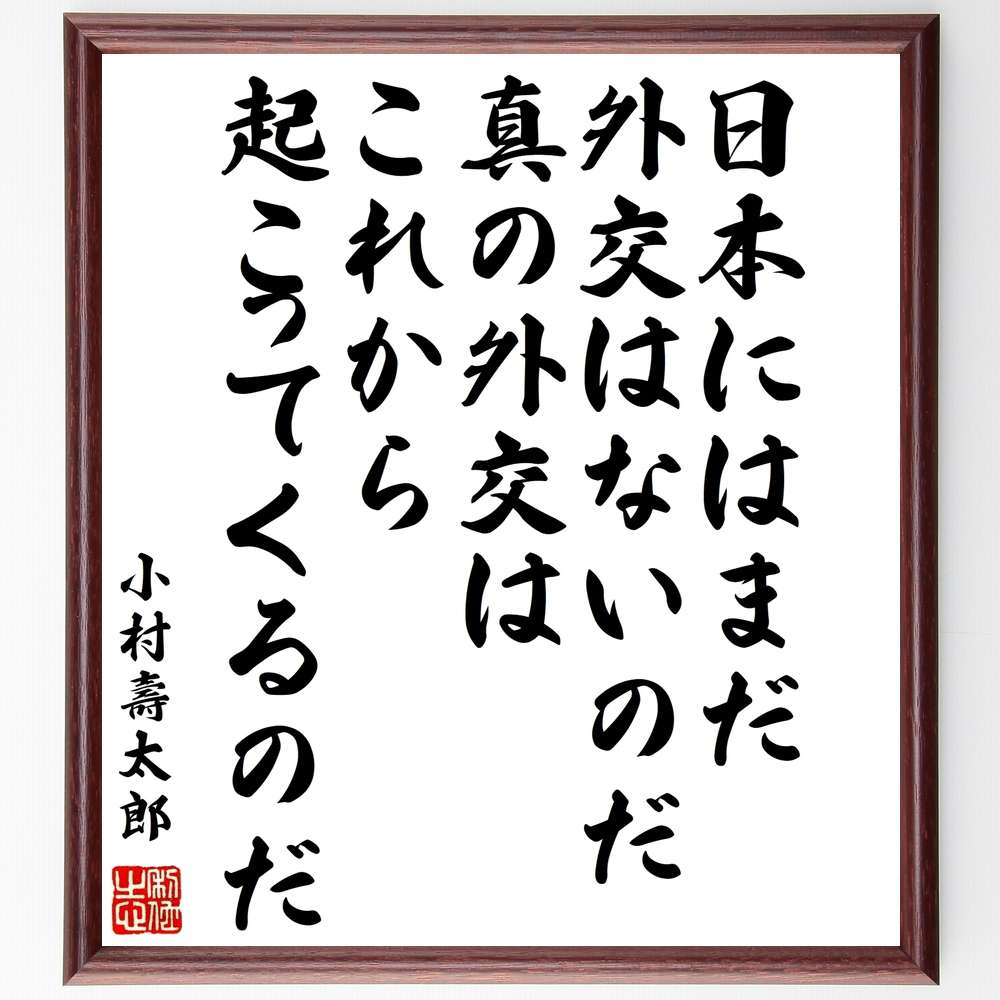 日本にはまだ
外交はないのだ
真の外交は
これから
起こってくるのだ
小村壽太郎